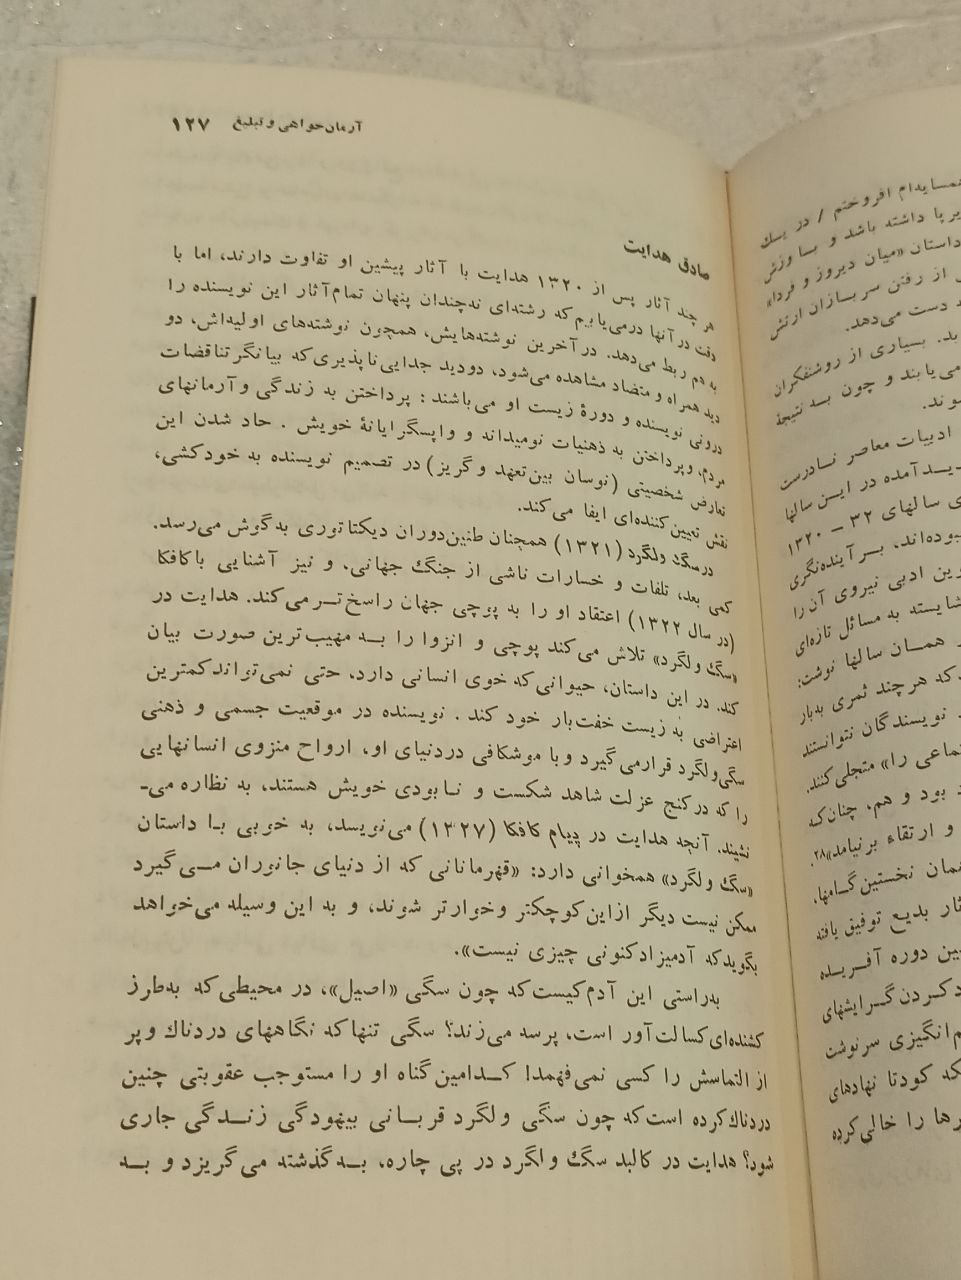 آرمان‌خواهی و تبلیغ ۱۲۷
صادق هدایت
هرچند آثار پس از ۱۳۲۰ هدایت با آثار پیشین او تفاوت دارند، اما با
دقت در آنها درمی‌یابیم که رشته‌ای نه‌چندان پنهان تمام‌آثار این نویسنده را
به هم ربط می‌دهد. در آخرین نوشته‌هایش، همچون نوشته‌های اولیه‌اش، دو
دید همراه و متضاد مشاهده می‌شود، دودید جدایی‌ناپذیری‌که بیانگر تناقضات
درونی نویسنده و دورهٔ زیست او می‌باشند: پرداختن به زندگی و آرمانهای
مردم، و پرداختن به ذهنیات نومیدانه و واپسگرایانهٔ خویش. حاد شدن این
تعارض شخصیتی (نوسان بین‌تعهد و گریز) در تصمیم نویسنده به خودکشی،
نقش تعیین‌کننده‌ای ایفا می‌کند.
در سگ ولگرد (۱۳۲۱) همچنان طنین‌دوران دیکتاتوری به‌گوش می‌رسد.
کمی بعد، تلفات و خسارات ناشی از جنگ جهانی، و نیز آشنایی با کافکا
(در سال ۱۳۲۲) اعتقاد او را به پوچی جهان راسخ‌تـر می‌کند. هدایت در
«سگ ولگرد» تلاش می‌کند پوچی و انزوا را بـه مهیب‌ترین صورت بیان
کند. در این داستان، حیوانی‌که خوی انسانی دارد، حتی نمی‌تواند کمترین
اعتراضی به زیست خفت‌بار خود کند. نویسنده در موقعیت جسمی و ذهنی
سگی‌ولگرد قرارمی‌گیرد و با موشکافی دردنیای او، ارواح منزوی انسانهایی
را که درکنج عزلت شاهد شکست و نـابودی خویش هستند، به نظاره می‌ـ
نشیند. آنچه هدایت در پیام کافکا (۱۳۲۷) می‌نویسد، به خوبی بـا داستان
«سگ ولگرد» همخوانی دارد: «قهرمانانی که از دنیای جانوران مـی‌گیرد
ممکن نیست دیگر ازاین‌کوچکتر وخوارتر شوند، و به این وسیله می‌خواهد
بگویدکه آدمیزاد کنونی چیزی نیست».
به‌راستی این آدم‌کیست‌که چون سگی «اصیل»، در محیطی‌که به‌طرز
کشنده‌ای‌کسالت‌آور است، پرسه می‌زند؟ سگی تنها که نگاههای دردناك وپر
از التماسش را کسی نمی‌فهمد! کـدامین‌گناه او را مستوجب عقوبتی چنین
دردناك‌کرده است‌که چون سگی ولگرد قربـانی بیهودگی زنـدگی جاری
شود؟ هدایت در کالبد سگ ولگرد در پی چاره، بـه‌گذشته می‌گریزد و بـه
همسایه‌ام افروختم / در یـك
داشته باشد و بـا وزش
داستان «میان دیروز و فردا»
از رفتن سربـازان ارتش
دست می‌دهد.
بسیاری از روشنفکران
می‌یابند و چون بـه نتیجهٔ
ادبیات معاصر نـادرست
آمده در ایـن سالها
سالهای ۳۲ – ۱۳۲۰
بوده‌اند، بـر آینده‌نگری
ادبی نیروی آن‌را
شایسته به مسائل تازه‌ای
همـان سالها نوشت:
که هرچند ثمری به‌بار
نویسندگان نتوانستند
را» متجلی‌کنند.
بود و هم، چنان‌کـه
و ارتقاء برنیامد»۲۸.
نخستین گـامها،
بدیع توفیق یافته
دوره آفـریـده
کـردن گـرایشهای
سرنوشت
که کودتا نهادهای
را خالی‌کرده